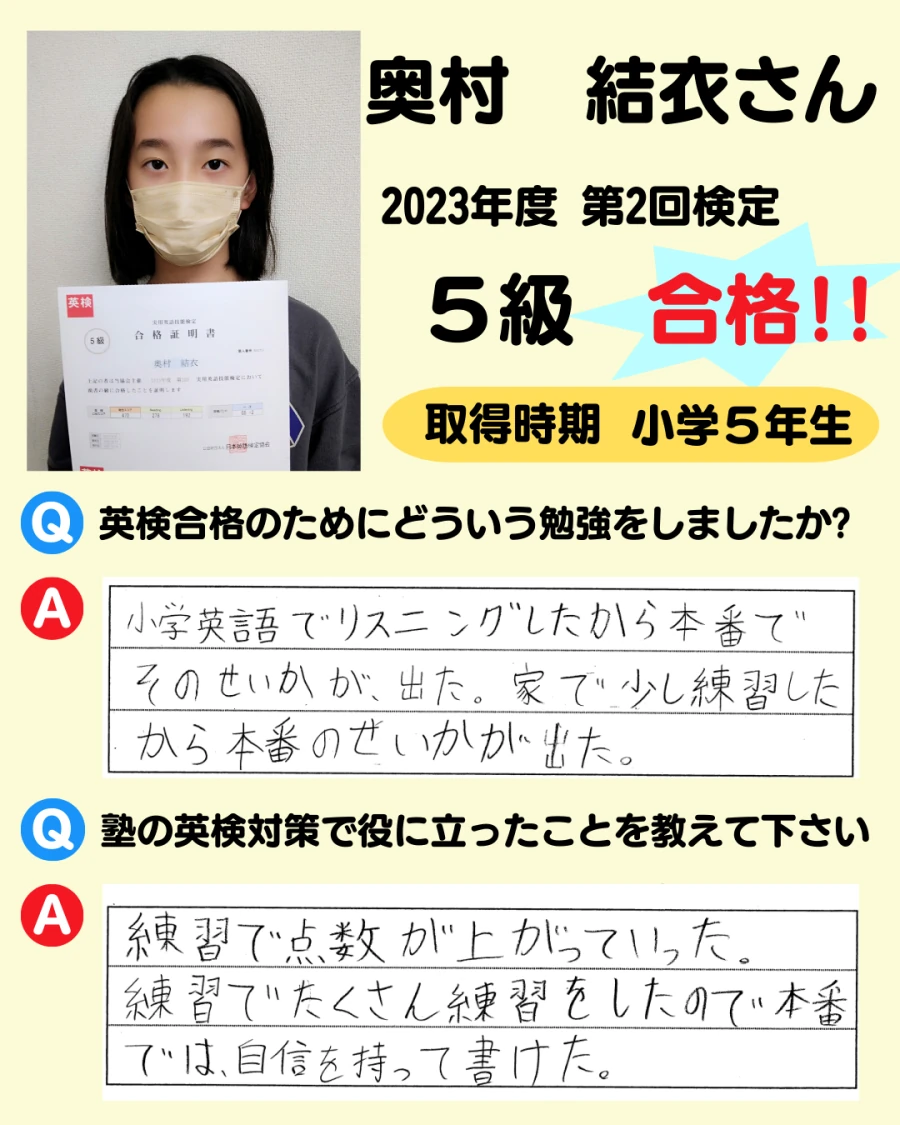 奥村 結衣さん
2023年度 第2回検定
5級 合格!!
取得時期 小学5年生
英検
5級
実用英語技能検定
合格証明書
奥村 結衣
Q 英検合格のためにどういう勉強をしましたか?
A
小学英語でリスニングしたから本番で
そのせいかが、出た。家で少し練習した
から本番のせいかが出た。
Q 塾の英検対策で役に立ったことを教えて下さい
A
練習で点数が上がっていった。
練習でたくさん練習をしたので本番
では、自信を持って書けた。